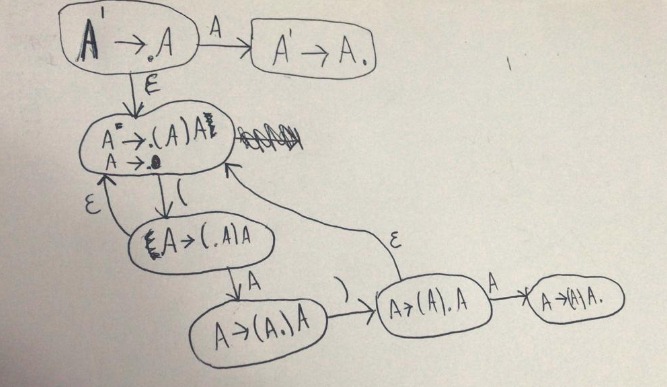 A' → .A
A
A' → A.
ε
A → .(A)A
A → .
ε
(
A → (.A)A
A
ε
A → (A.)A
)
A → (A).A
A
A → (A)A.